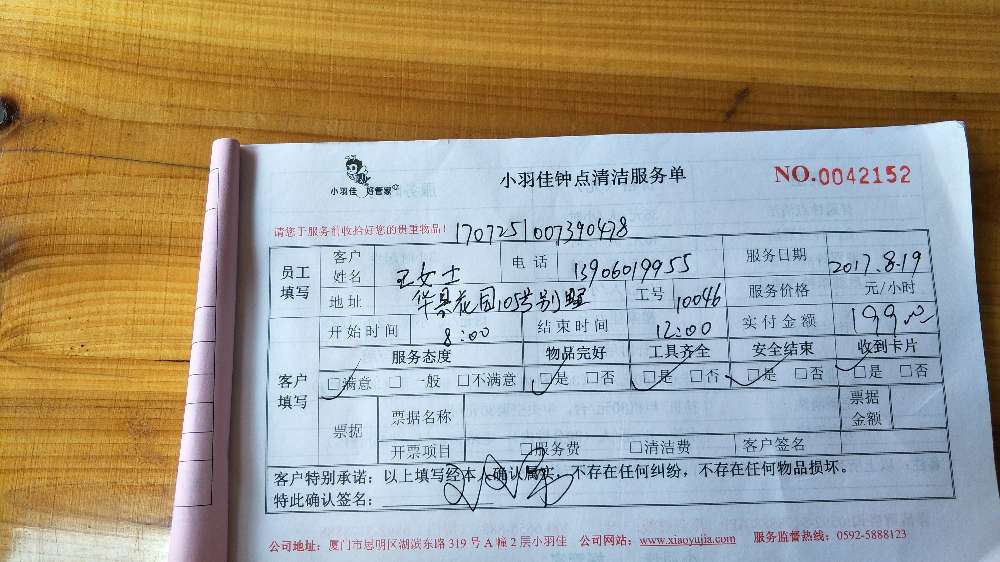 小羽佳 好管家
小羽佳钟点清洁服务单
NO.0042152
请您于服务前收拾好您的贵重物品！ 1707251007390478
员工填写 客户姓名 王女士 电话 13906019955 服务日期 2017.8.19
地址 华景花园105号别墅 工号 10046 服务价格 元/小时
开始时间 8:00 结束时间 12:00 实付金额 199.00
客户填写 服务态度 物品完好 工具齐全 安全结束 收到卡片
□满意 □一般 □不满意 □是 □否 □是 □否 □是 □否 □是 □否
票据 票据名称 票据金额
开票项目 □服务费 □清洁费 客户签名
客户特别承诺：以上填写经本人确认属实，不存在任何纠纷，不存在任何物品损坏。
特此确认签名：
公司地址：厦门市思明区湖滨东路319号A幢2层小羽佳 公司网站：www.xiaoyujia.com 服务监督热线：0592-5888123